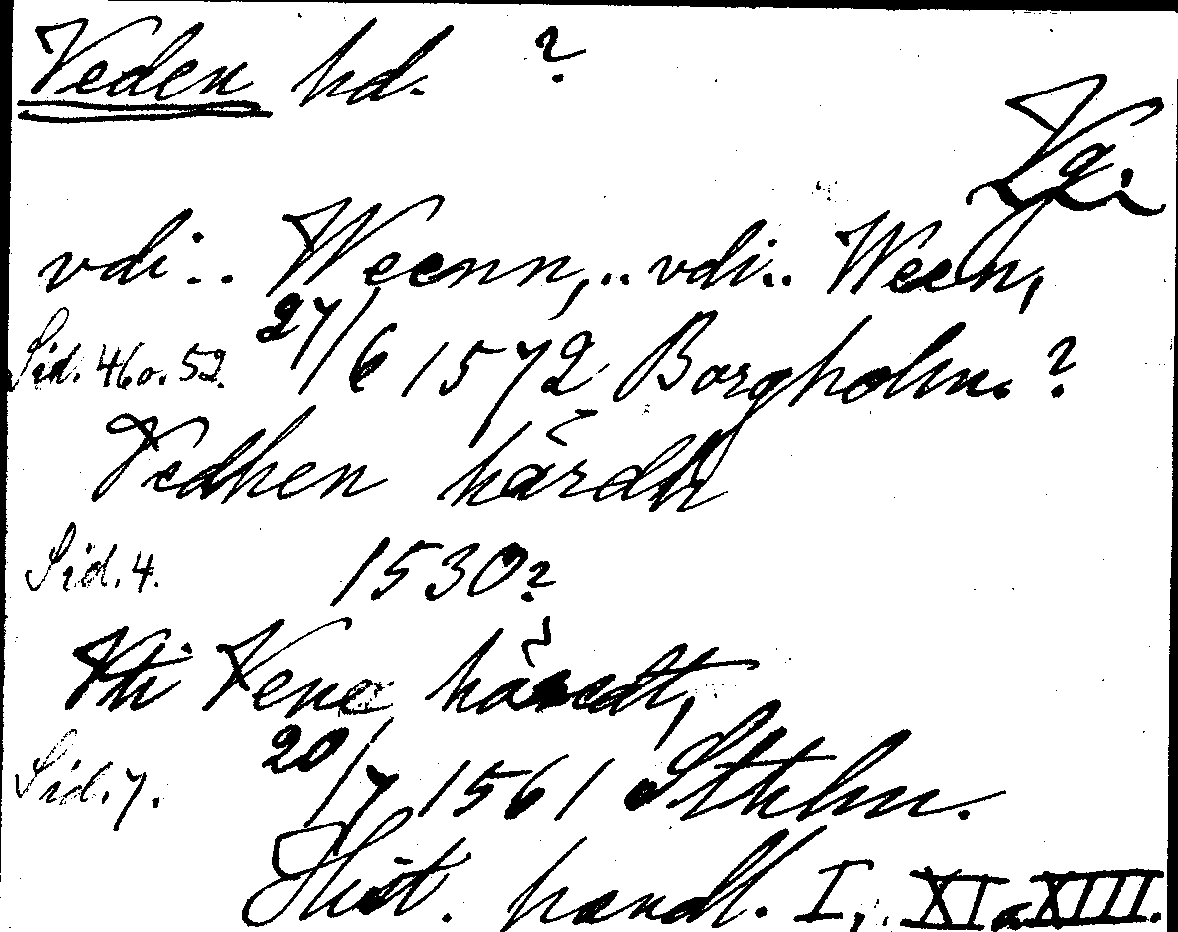 Veden hd. ?
Vg.
vdi.. Weenn,.. vdi.. Ween,
Sid. 46 o. 52. 27/6 1572 Borgholm. ?
Vedhen härdh
Sid. 4. 1530?
Vti Vene häredt,
Sid. 7. 20/7 1561 Sthlm.
Hist. handl. I, XI o XIII.